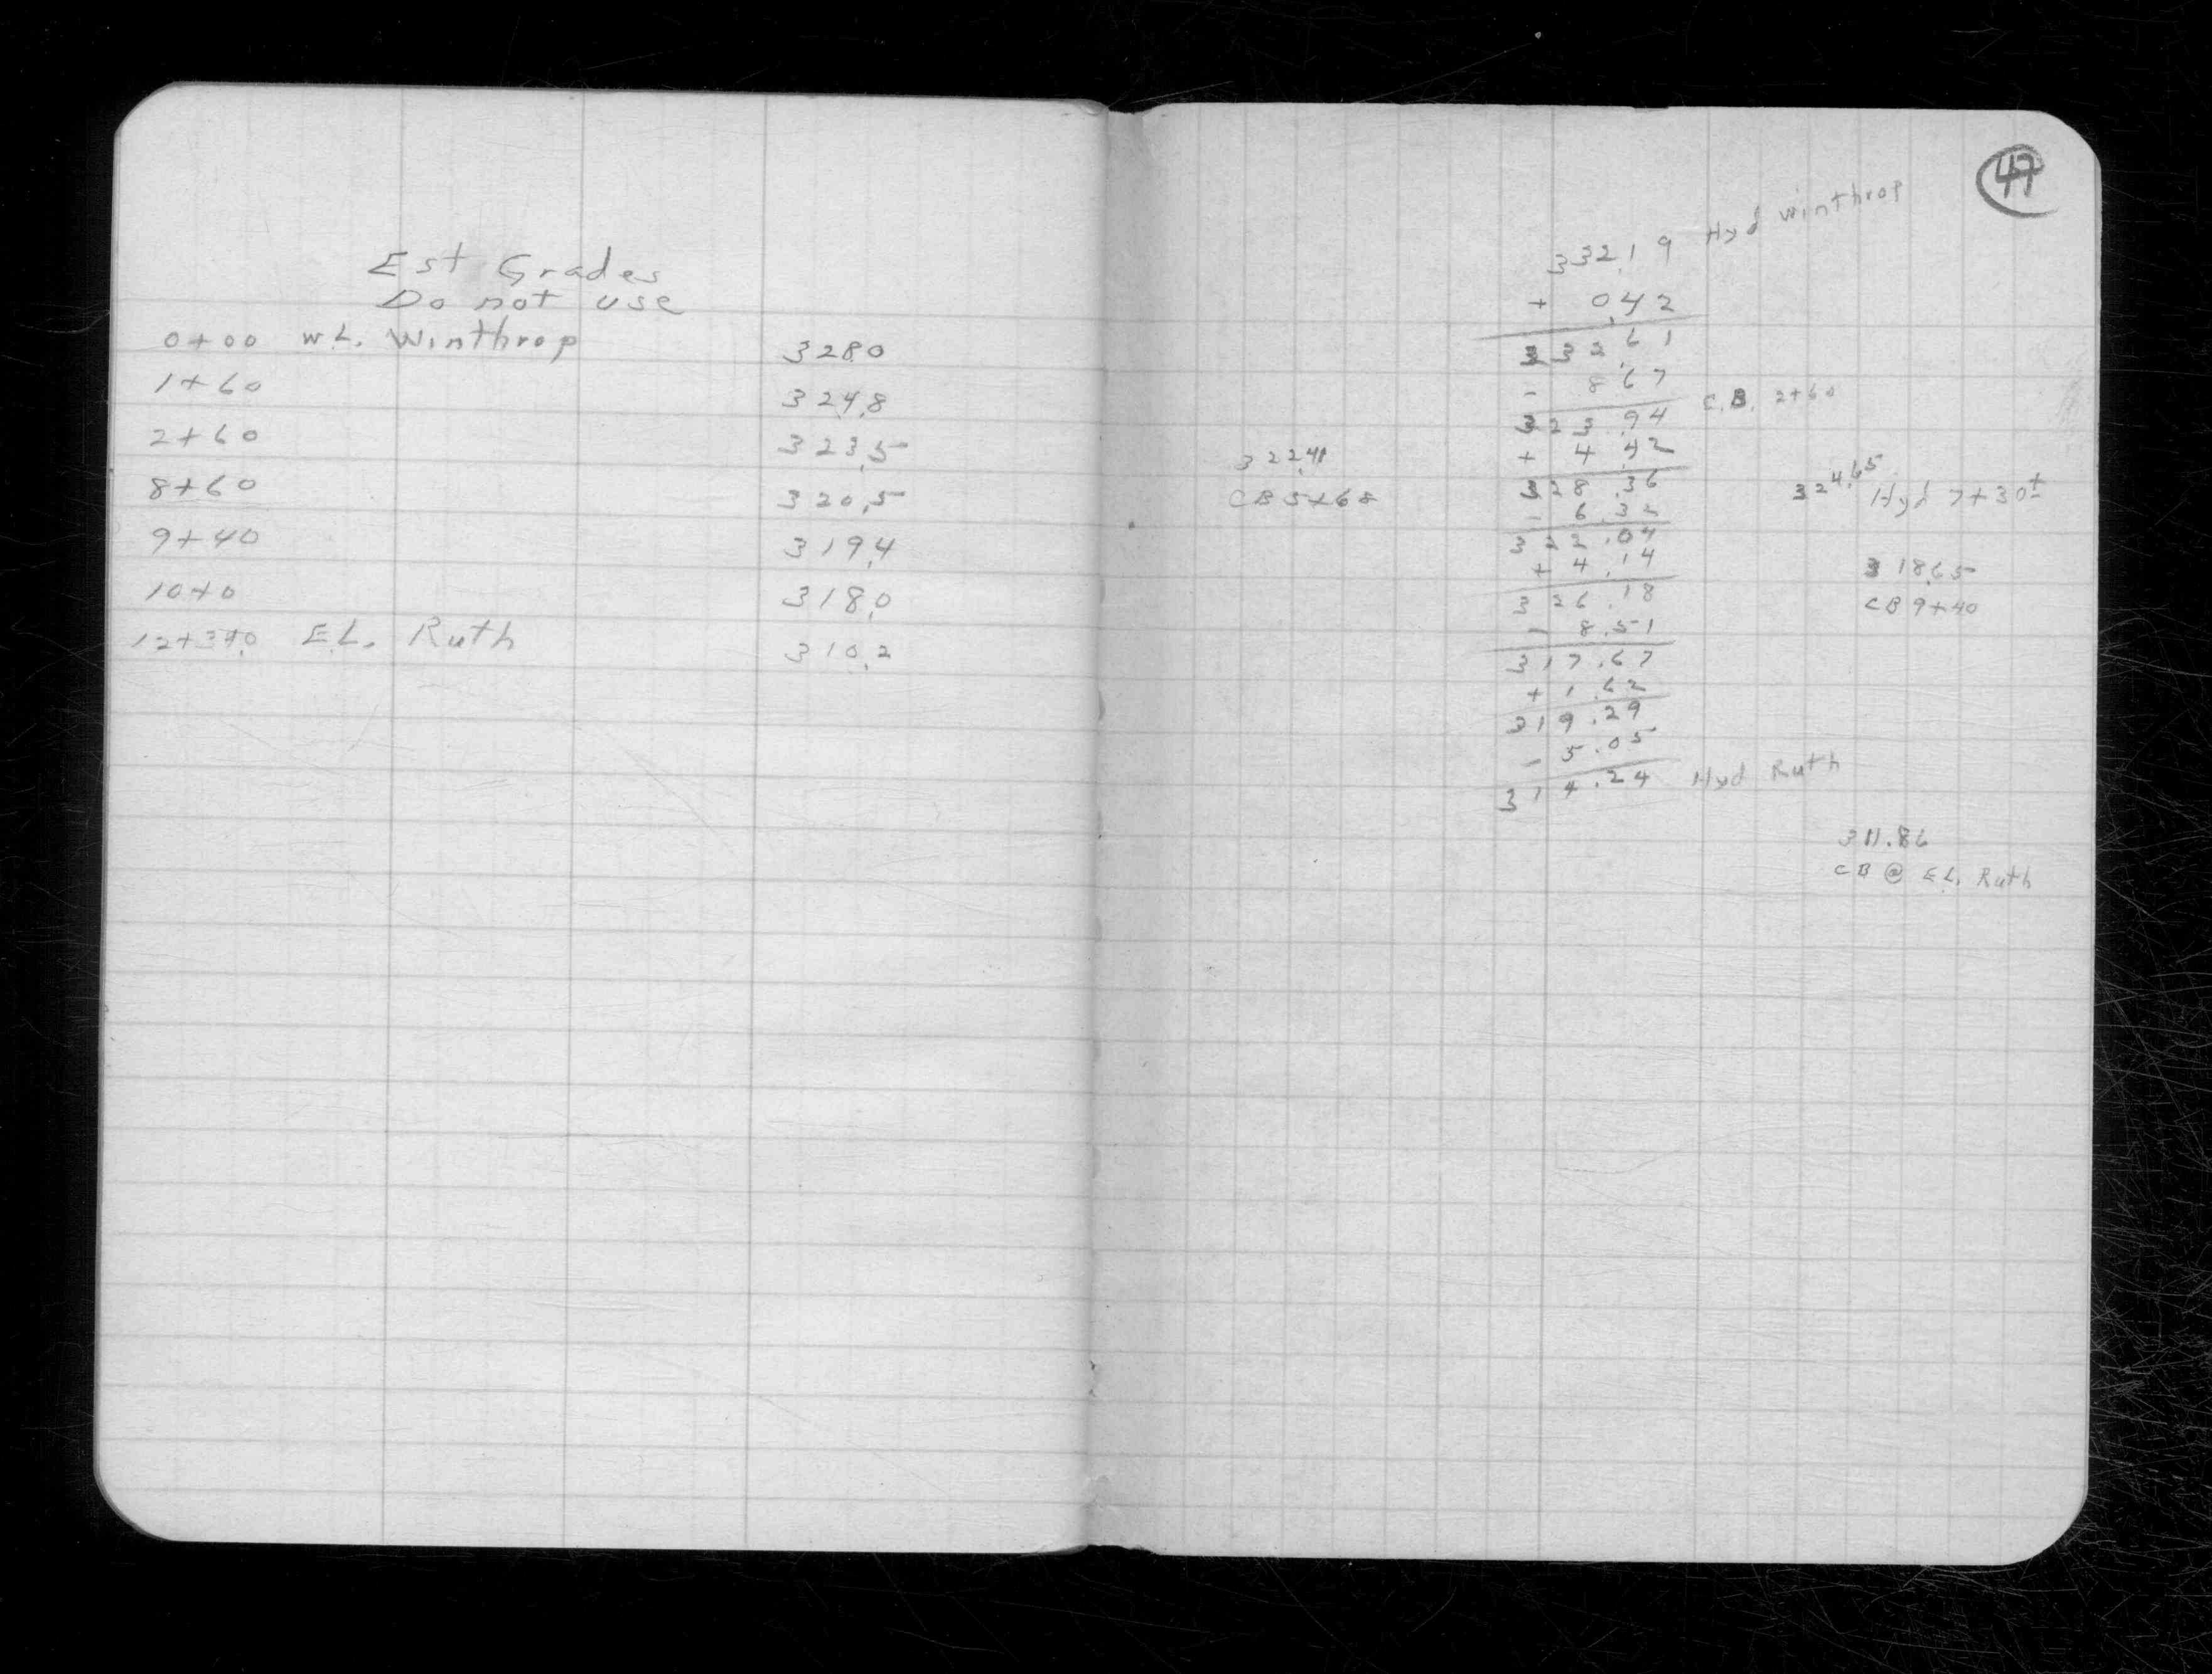 Est Grades
Do not use
0+00 W.L. Winthrop 328.0
1+60 324.8
2+60 323.5
8+60 320.5
9+40 319.4
10+0 318.0
E.L. Ruth 310.2
47
332.19 Hyd Winthrop
+ 0.42
332.61
- 8.67
323.94 C.B. 2+60
+ 4.42
322.41
CB 5+68
328.36
- 6.32
322.04
+ 4.14
326.18
- 8.51
317.67
+ 1.62
319.29
- 5.05
314.24 Hyd Ruth
324.65 Hyd 7+30±
318.65
CB 9+40
311.86
CB @ E.L. Ruth